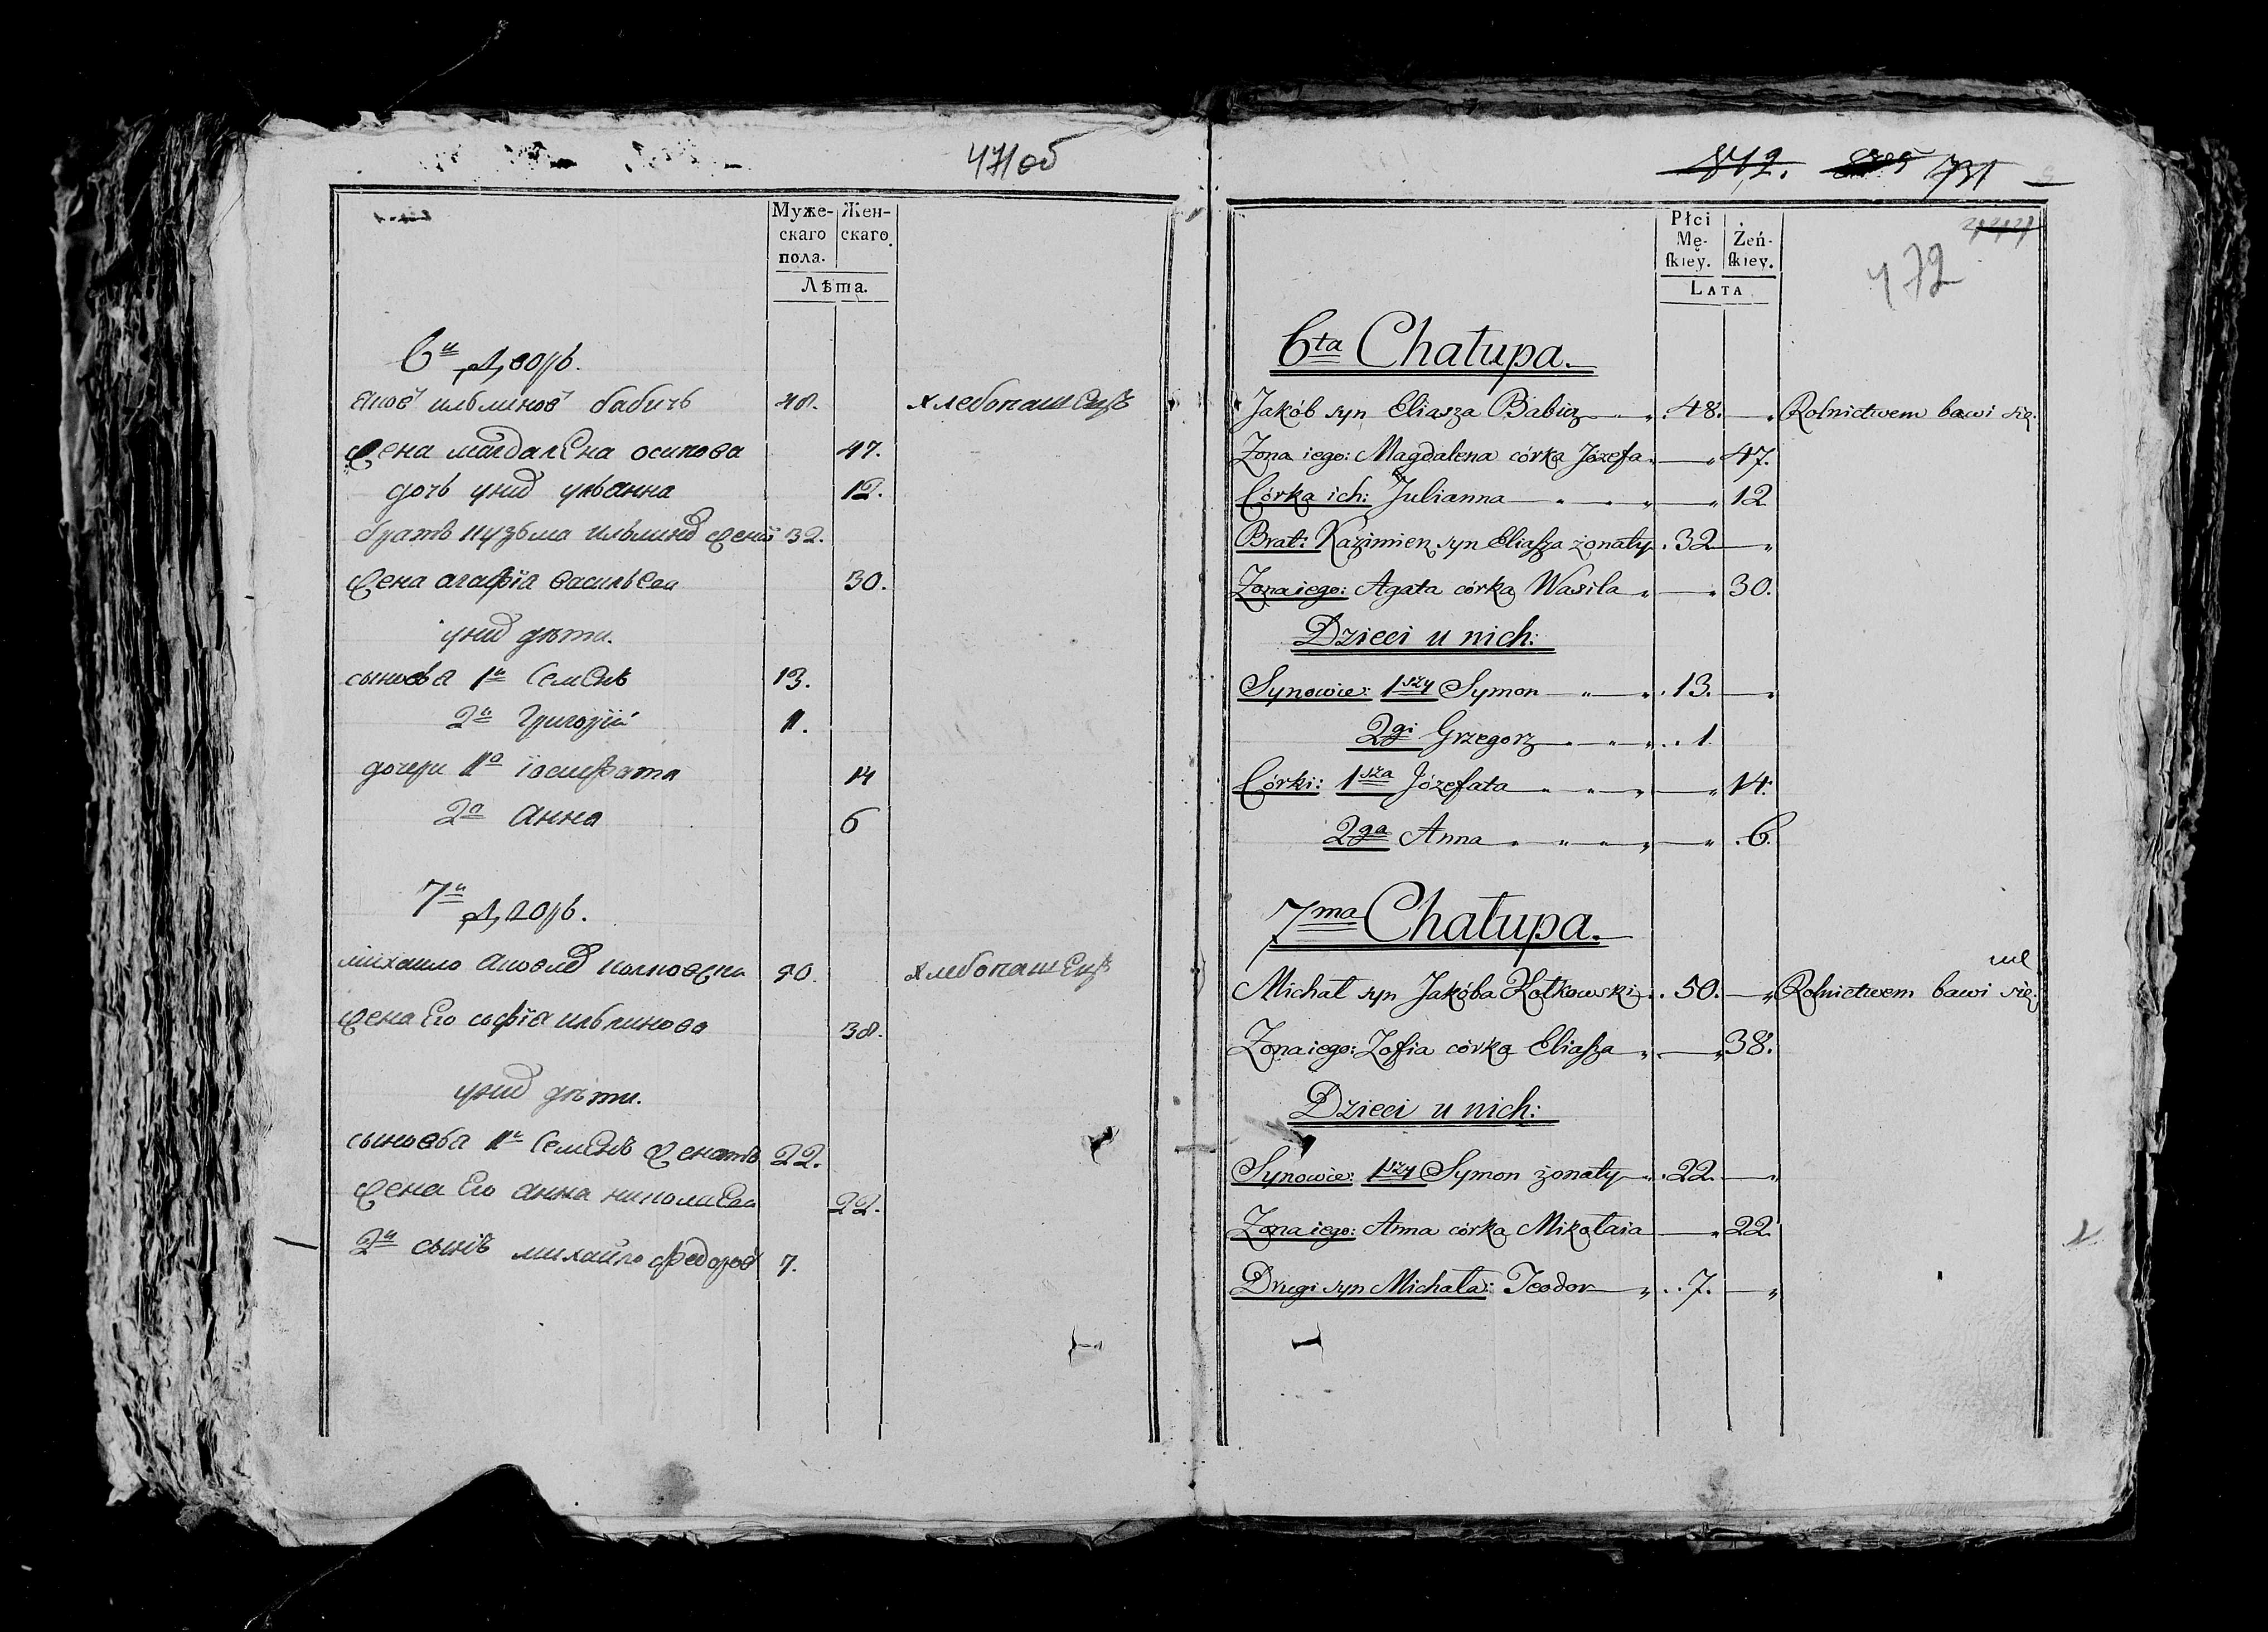 471об
Муже- Жен-
скаго скаго
пола.
Лѣта.
6й дворъ.
яковъ ильиновъ бабичъ 48. хлебопашецъ
жена магдалена осипова 47.
дочь унихъ ульанна 12.
братъ кузьма ильинъ женатъ 32.
жена агафія васильева 30.
унихъ дѣти.
сыновья 1й Семенъ 13.
2й григорій 1.
дочери 1а іосифата 14
2а анна 6
7й дворъ.
михайло яковлев 50. хлебопашецъ
жена Его софія ильинова 38.
унихъ дѣти.
сыновья 1й Семенъ женатъ 22.
жена Его анна николаева 22.
2й сынъ михайло федоров 7.
812. 731
Płci
Mę- Żeń-
skiey. skiey.
LATA
472
6ta Chałupa.
Jakób syn Eliasza Babicz 48. Rolnictwem bawi się.
Zona iego: Magdalena córka Józefa 47.
Córka ich: Julianna 12
Brat: Kazimierz syn Eliasza żonaty 32
Zona iego: Agata córka Wasila 30.
Dzieci u nich:
Synowie: 1szy Symon 13.
2gi Grzegorz 1.
Córki: 1sza Józefata 14.
2ga Anna 6.
7ma Chałupa.
Michał syn Jakóba Kotkowski 50. Rolnictwem bawi się.
Zona iego: Zofia córka Eliasza 38.
Dzieci u nich:
Synowie: 1szy Symon żonaty 22.
Zona iego: Anna córka Mikołaia 22.
Drugi syn Michała: Teodor 7.